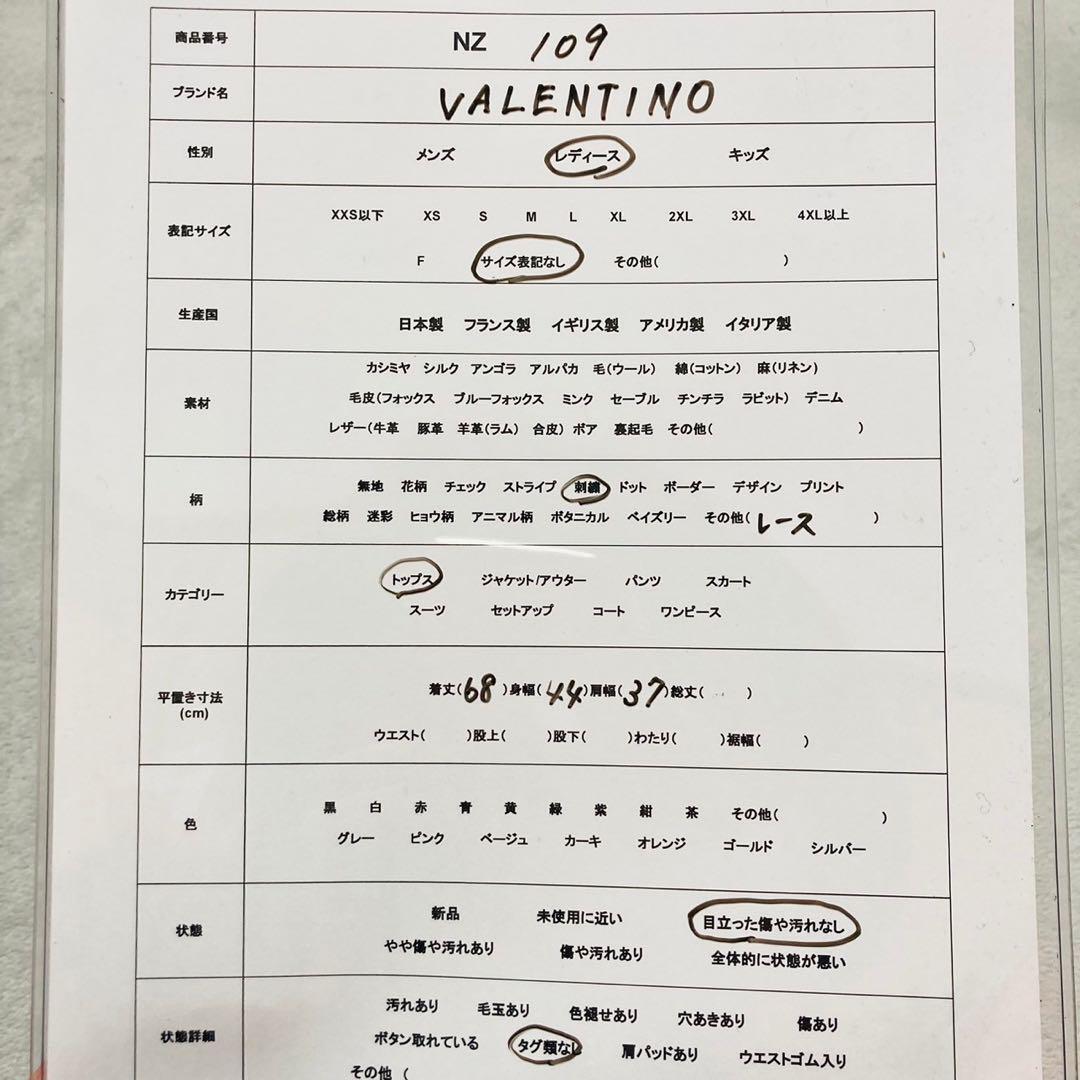 商品番号 NZ 109
ブランド名 VALENTINO
性別 メンズ レディース キッズ
表記サイズ XXS以下 XS S M L XL 2XL 3XL 4XL以上
F サイズ表記なし その他( )
生産国 日本製 フランス製 イギリス製 アメリカ製 イタリア製
素材 カシミヤ シルク アンゴラ アルパカ 毛(ウール) 綿(コットン) 麻(リネン)
毛皮(フォックス ブルーフォックス ミンク セーブル チンチラ ラビット) デニム
レザー(牛革 豚革 羊革(ラム) 合皮) ボア 裏起毛 その他( )
柄 無地 花柄 チェック ストライプ 刺繍 ドット ボーダー デザイン プリント
総柄 迷彩 ヒョウ柄 アニマル柄 ボタニカル ペイズリー その他(レース )
カテゴリー トップス ジャケット/アウター パンツ スカート
スーツ セットアップ コート ワンピース
平置き寸法
(cm)
着丈(68 )身幅(44)肩幅(37)総丈( )
ウエスト( )股上( )股下( )わたり( )裾幅( )
色 黒 白 赤 青 黄 緑 紫 紺 茶 その他( )
グレー ピンク ベージュ カーキ オレンジ ゴールド シルバー
状態 新品 未使用に近い 目立った傷や汚れなし
やや傷や汚れあり 傷や汚れあり 全体的に状態が悪い
状態詳細 汚れあり 毛玉あり 色褪せあり 穴あきあり 傷あり
ボタン取れている タグ類なし 肩パッドあり ウエストゴム入り
その他 (